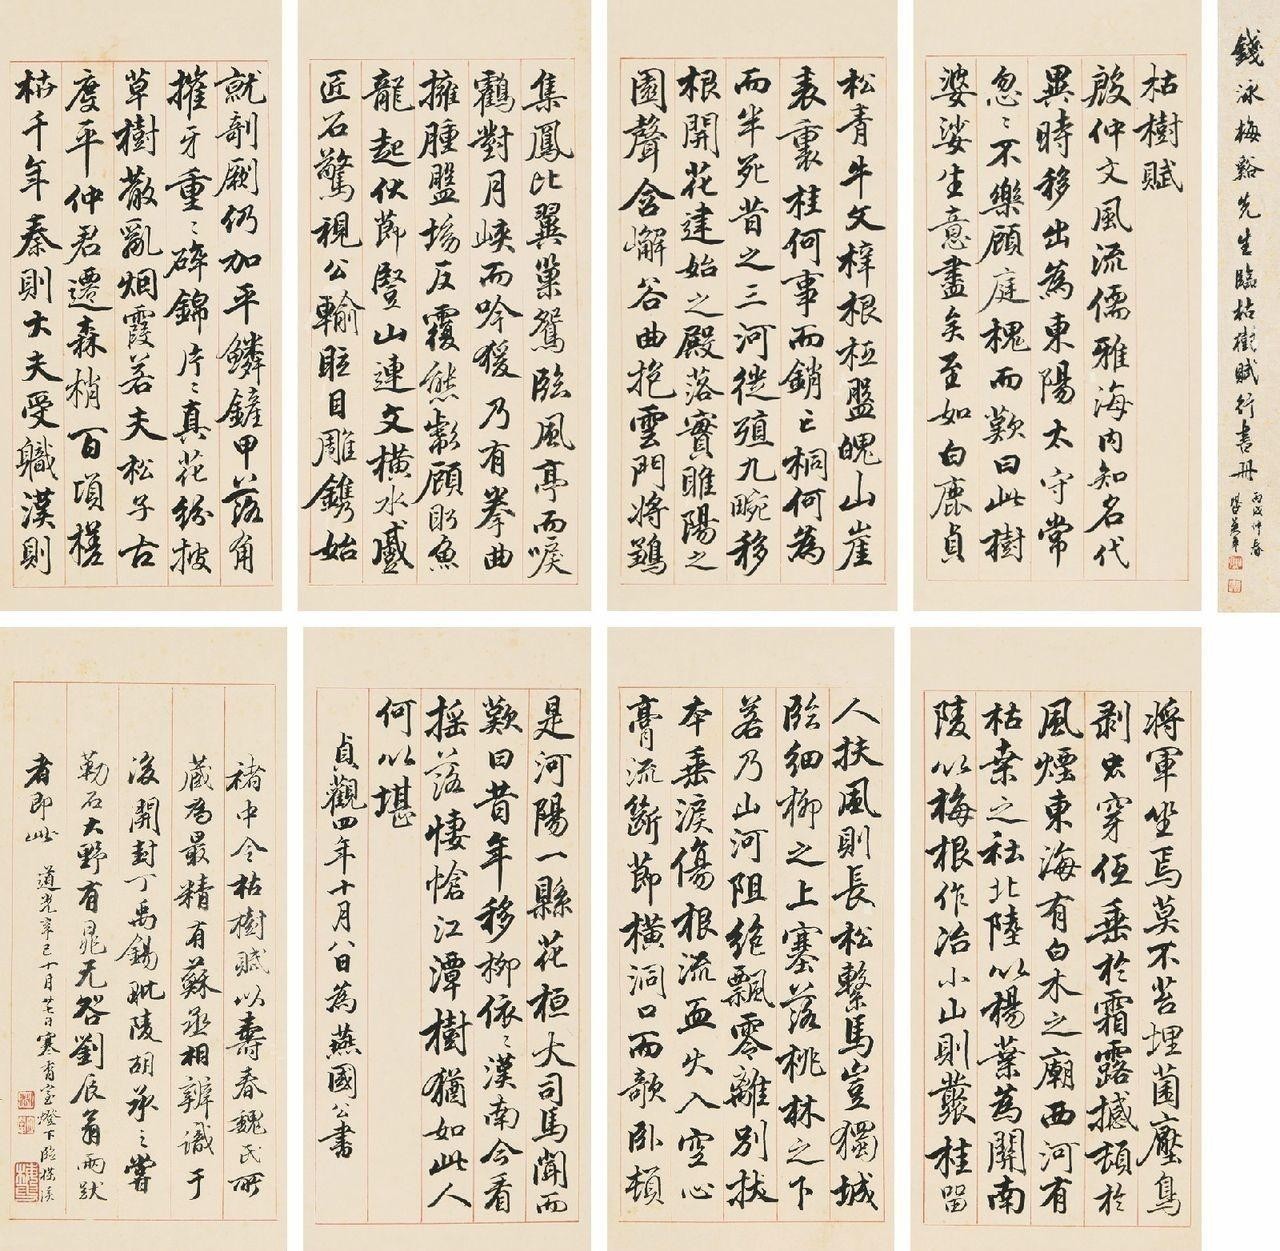 錢泳梅谿先生臨枯樹賦行書冊
丙戌仲春
枯樹賦
殷仲文風流儒雅海內知名代
異時移出為東陽太守常
忽〻不樂顧庭槐而歎曰此樹
婆娑生意盡矣至如白鹿貞
松青牛文梓根柢盤魄山崖
表裏桂何事而銷亡桐何為
而半死昔之三河徙殖九畹移
根開花建始之殿落實睢陽之
園聲含嶰谷曲抱雲門將鶵
集鳳比翼巢鴛臨風亭而唳
鶴對月峽而吟猨乃有拳曲
擁腫盤坳反覆熊彪顧盼魚
龍起伏節豎山連文橫水蹙
匠石驚視公輸眩目雕鐫始
就剞劂仍加平鱗鏟甲落角
摧牙重〻碎錦片〻真花紛披
草樹散亂烟霞若夫松子古
度平仲君遷森梢百頃槎
枯千年秦則大夫受職漢則
將軍坐焉莫不苔埋菌壓鳥
剥虫穿低垂於霜露撼頓於
風煙東海有白木之廟西河有
枯桒之社北陸以楊葉為關南
陵以梅根作冶小山則叢桂留
人扶風則長松繫馬豈獨城
臨細柳之上塞落桃林之下
若乃山河阻絶飄零離別拔
本垂淚傷根流血火入空心
膏流斷節橫洞口而敧卧頓
是河陽一縣花桓大司馬聞而
歎曰昔年移柳依〻漢南今看
摇落悽愴江潭樹猶如此人
何以堪
貞觀四年十月八日為燕國公書
褚中令枯樹賦以壽春魏氏所
藏為最精有蘇丞相辨識于
後開封丁禹錫毗陵胡承之嘗
勒石大野有晁无咎劉辰翁兩跋
者即此
道光辛巳十月廿七日寒香室燈下臨梅溪